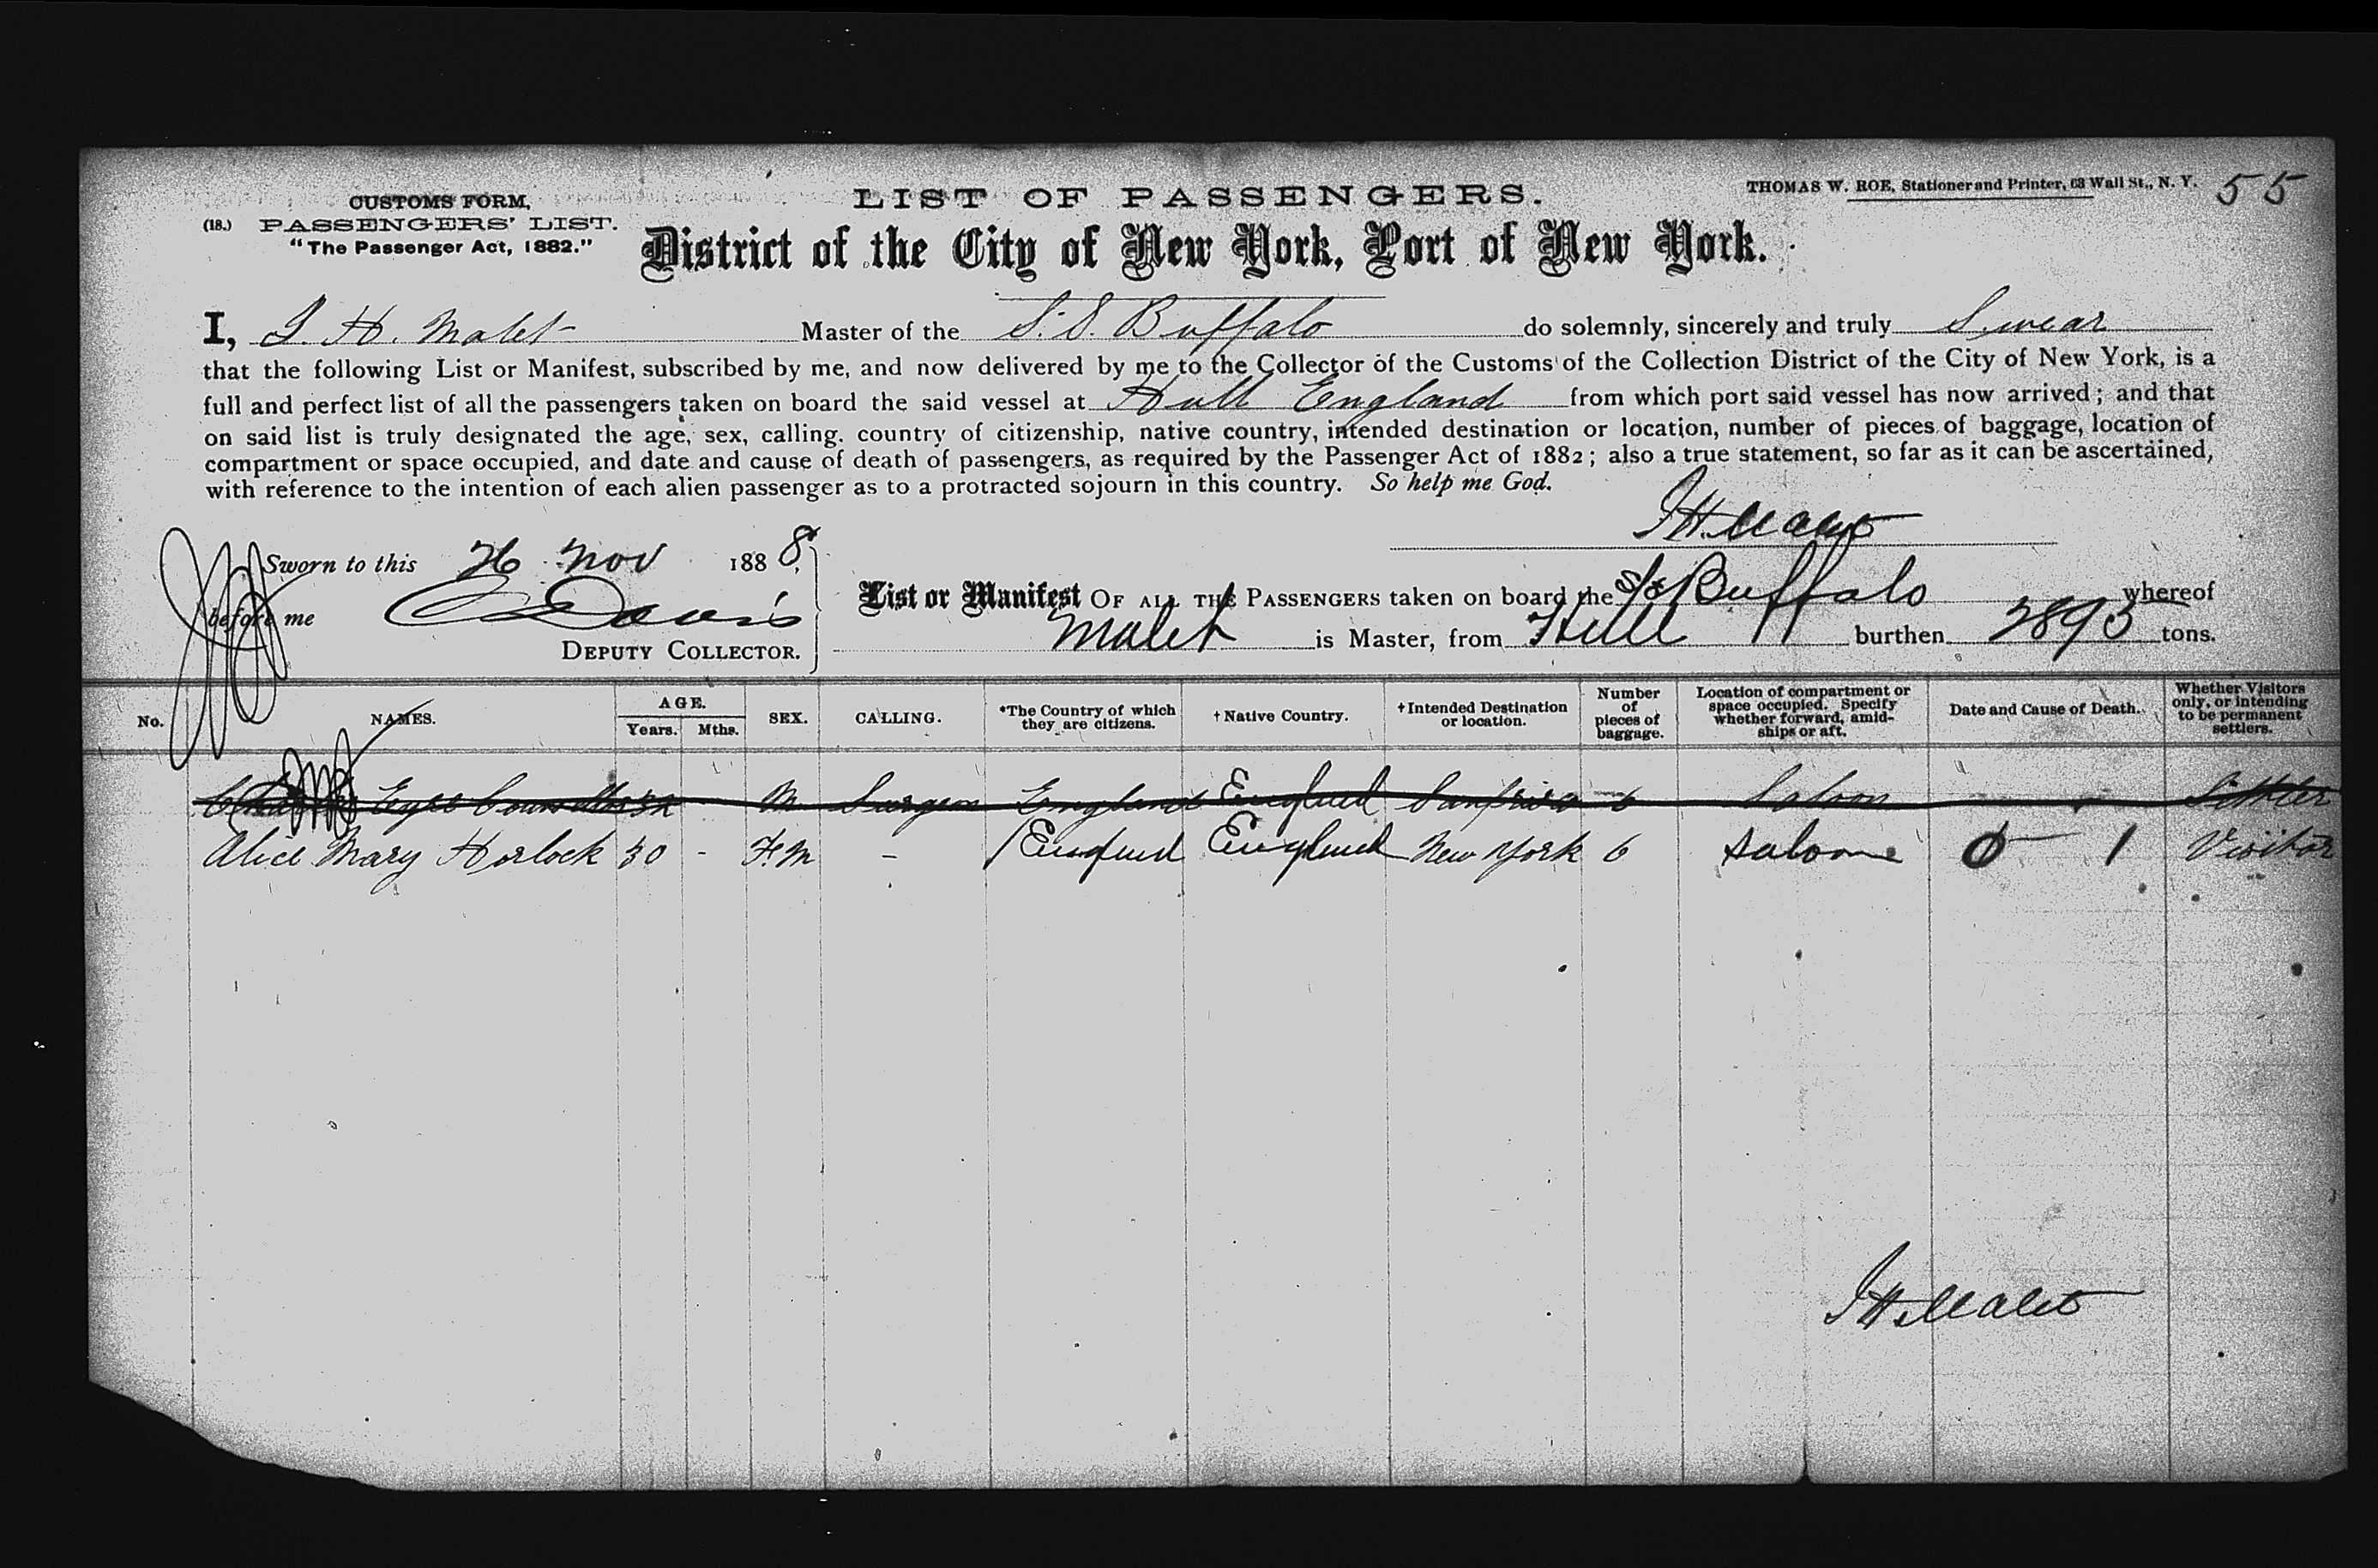 CUSTOMS FORM,
(18.) PASSENGERS' LIST.
"The Passenger Act, 1882."
LIST OF PASSENGERS.
THOMAS W. ROE, Stationer and Printer, 63 Wall St., N. Y.
55
District of the City of New York, Port of New York.
I, J. H. Malet Master of the S.S. Buffalo do solemnly, sincerely and truly Swear
that the following List or Manifest, subscribed by me, and now delivered by me to the Collector of the Customs of the Collection District of the City of New York, is a
full and perfect list of all the passengers taken on board the said vessel at Hull England from which port said vessel has now arrived; and that
on said list is truly designated the age, sex, calling, country of citizenship, native country, intended destination or location, number of pieces of baggage, location of
compartment or space occupied, and date and cause of death of passengers, as required by the Passenger Act of 1882; also a true statement, so far as it can be ascertained,
with reference to the intention of each alien passenger as to a protracted sojourn in this country. So help me God.
J H Malet
Sworn to this 26 Nov 1888,
before me Davis
DEPUTY COLLECTOR.
List or Manifest OF ALL THE PASSENGERS taken on board the S/S Buffalo whereof
Malet is Master, from Hull burthen 2893 tons.
No. NAMES. AGE. Years. Mths. SEX. CALLING. *The Country of which they are citizens. †Native Country. †Intended Destination or location. Number of pieces of baggage. Location of compartment or space occupied. Specify whether forward, amidships or aft. Date and Cause of Death. Whether Visitors only, or intending to be permanent settlers.
Eyre 32 - M Surgeon England England 6 Saloon Settler
Alice Mary Horlock 30 - Fm - England England New York 6 Saloon 1 Visitor
J H Malet